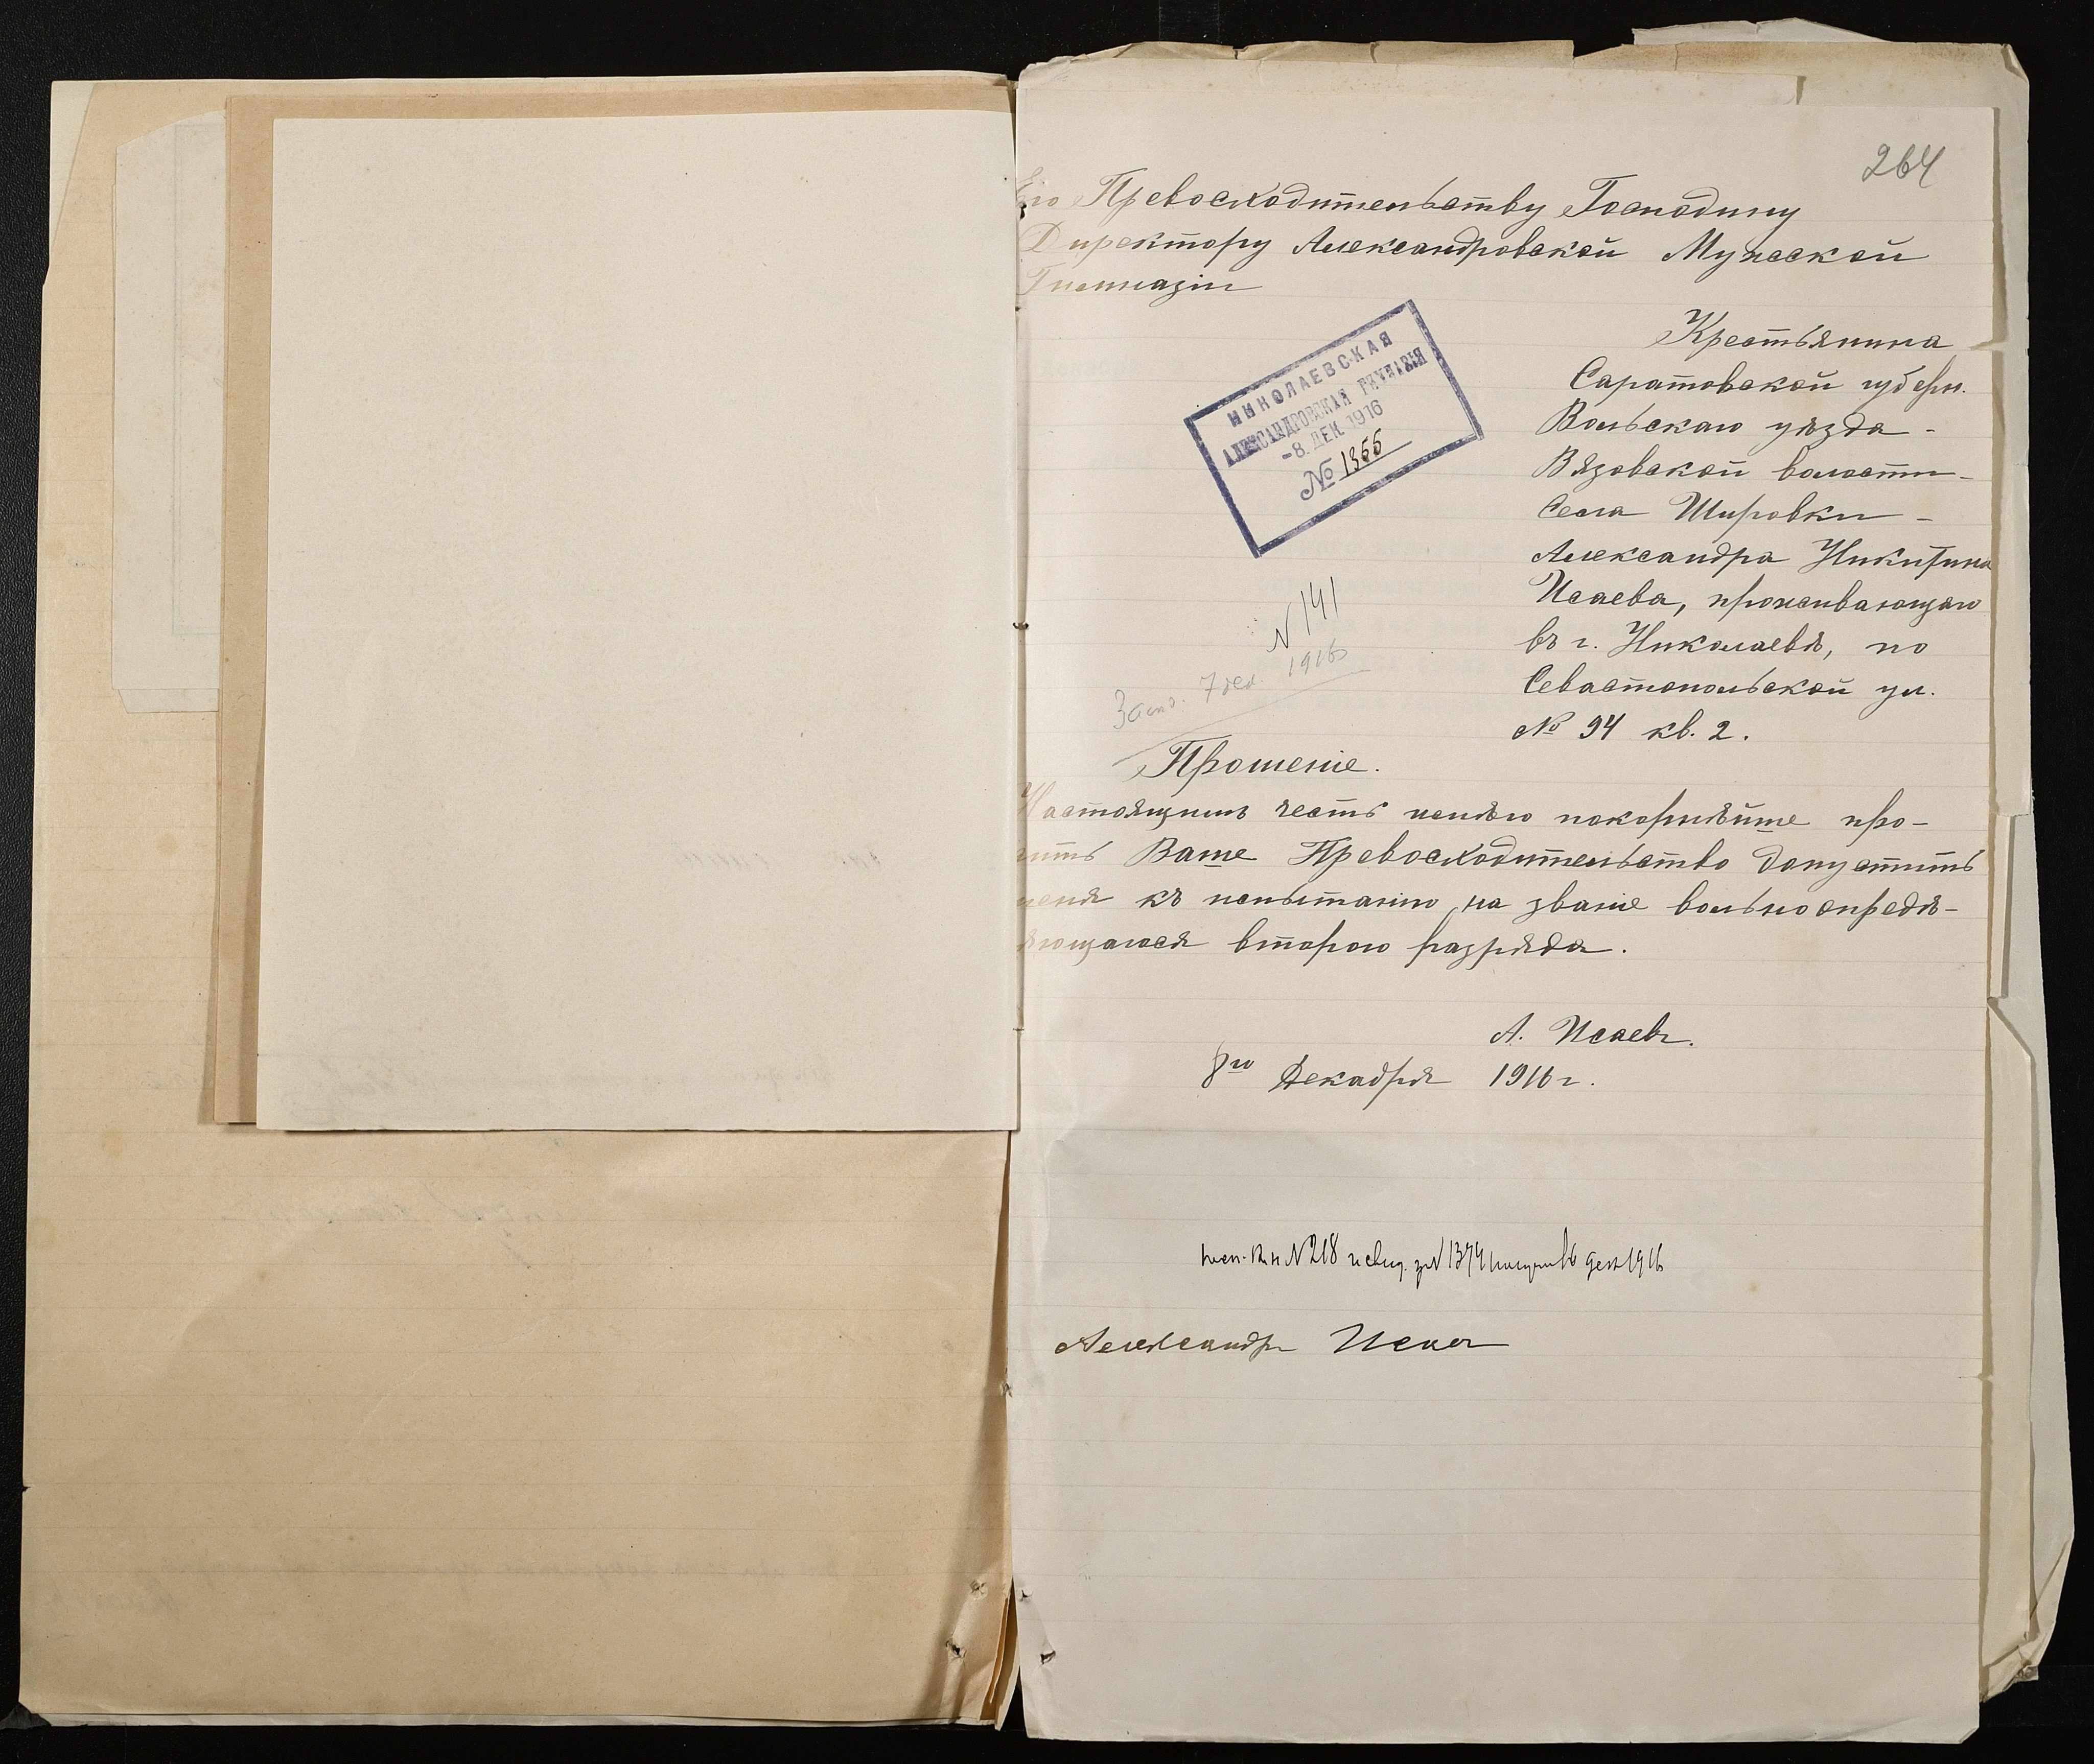 264
Его Превосходительству Господину
Директору Александровской Мужской
Гимназіи
НИКОЛАЕВСКАЯ
АЛЕКСАНДРОВСКАЯ ГИМНАЗІЯ
-8. ДЕК. 1916
№ 1355
Крестьянина
Саратовской губерн.
Вольскаго уѣзда -
Вязовской волости -
Села Шировки -
Александра Никитина
Исаева, проживающаго
въ г. Николаевѣ, по
Севастопольской ул.
№ 94 кв. 2.
N 141
7 дек. 1916
Прошеніе.
Настоящимъ честь имѣю покорнѣйше про-
сить Ваше Превосходительство допустить
меня къ испытанію на званіе вольноопредѣ-
ляющагося второго разряда.
А. Исаевъ.
8го Декабря 1916 г.
N 218 и свид. за N 1374 дек 1916
Александр Исаев